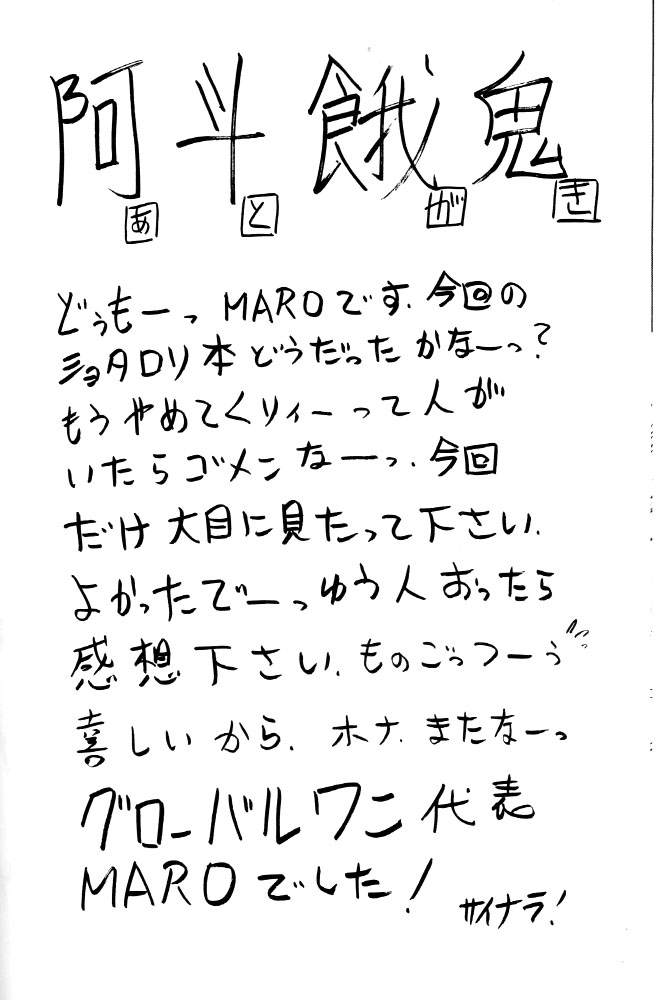 阿斗餓鬼
あとがき
どぅもーっ MAROです.今回の
ショタロリ本どうだったかなーっ?
もうやめてくりィーって人が
いたらゴメンなーっ.今回
だけ大目に見たって下さい.
よかったでーっゆう人おったら
感想下さい.ものごっつーぅ
喜しいから. ホナ.またなーっ
グローバルワン代表
MAROでした!
サイナラ!